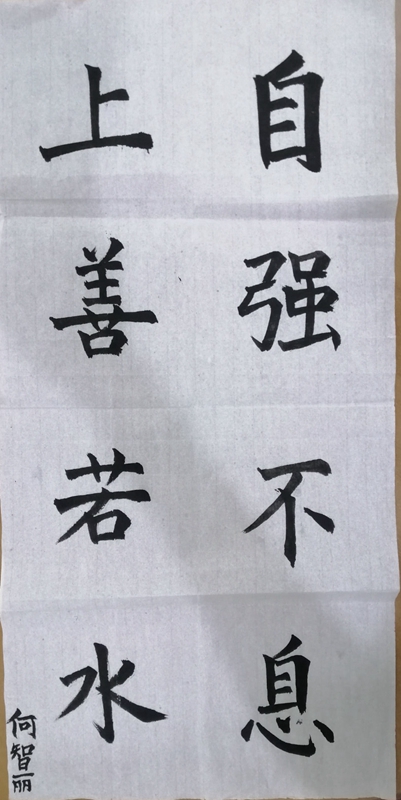 自强不息
上善若水
何智丽